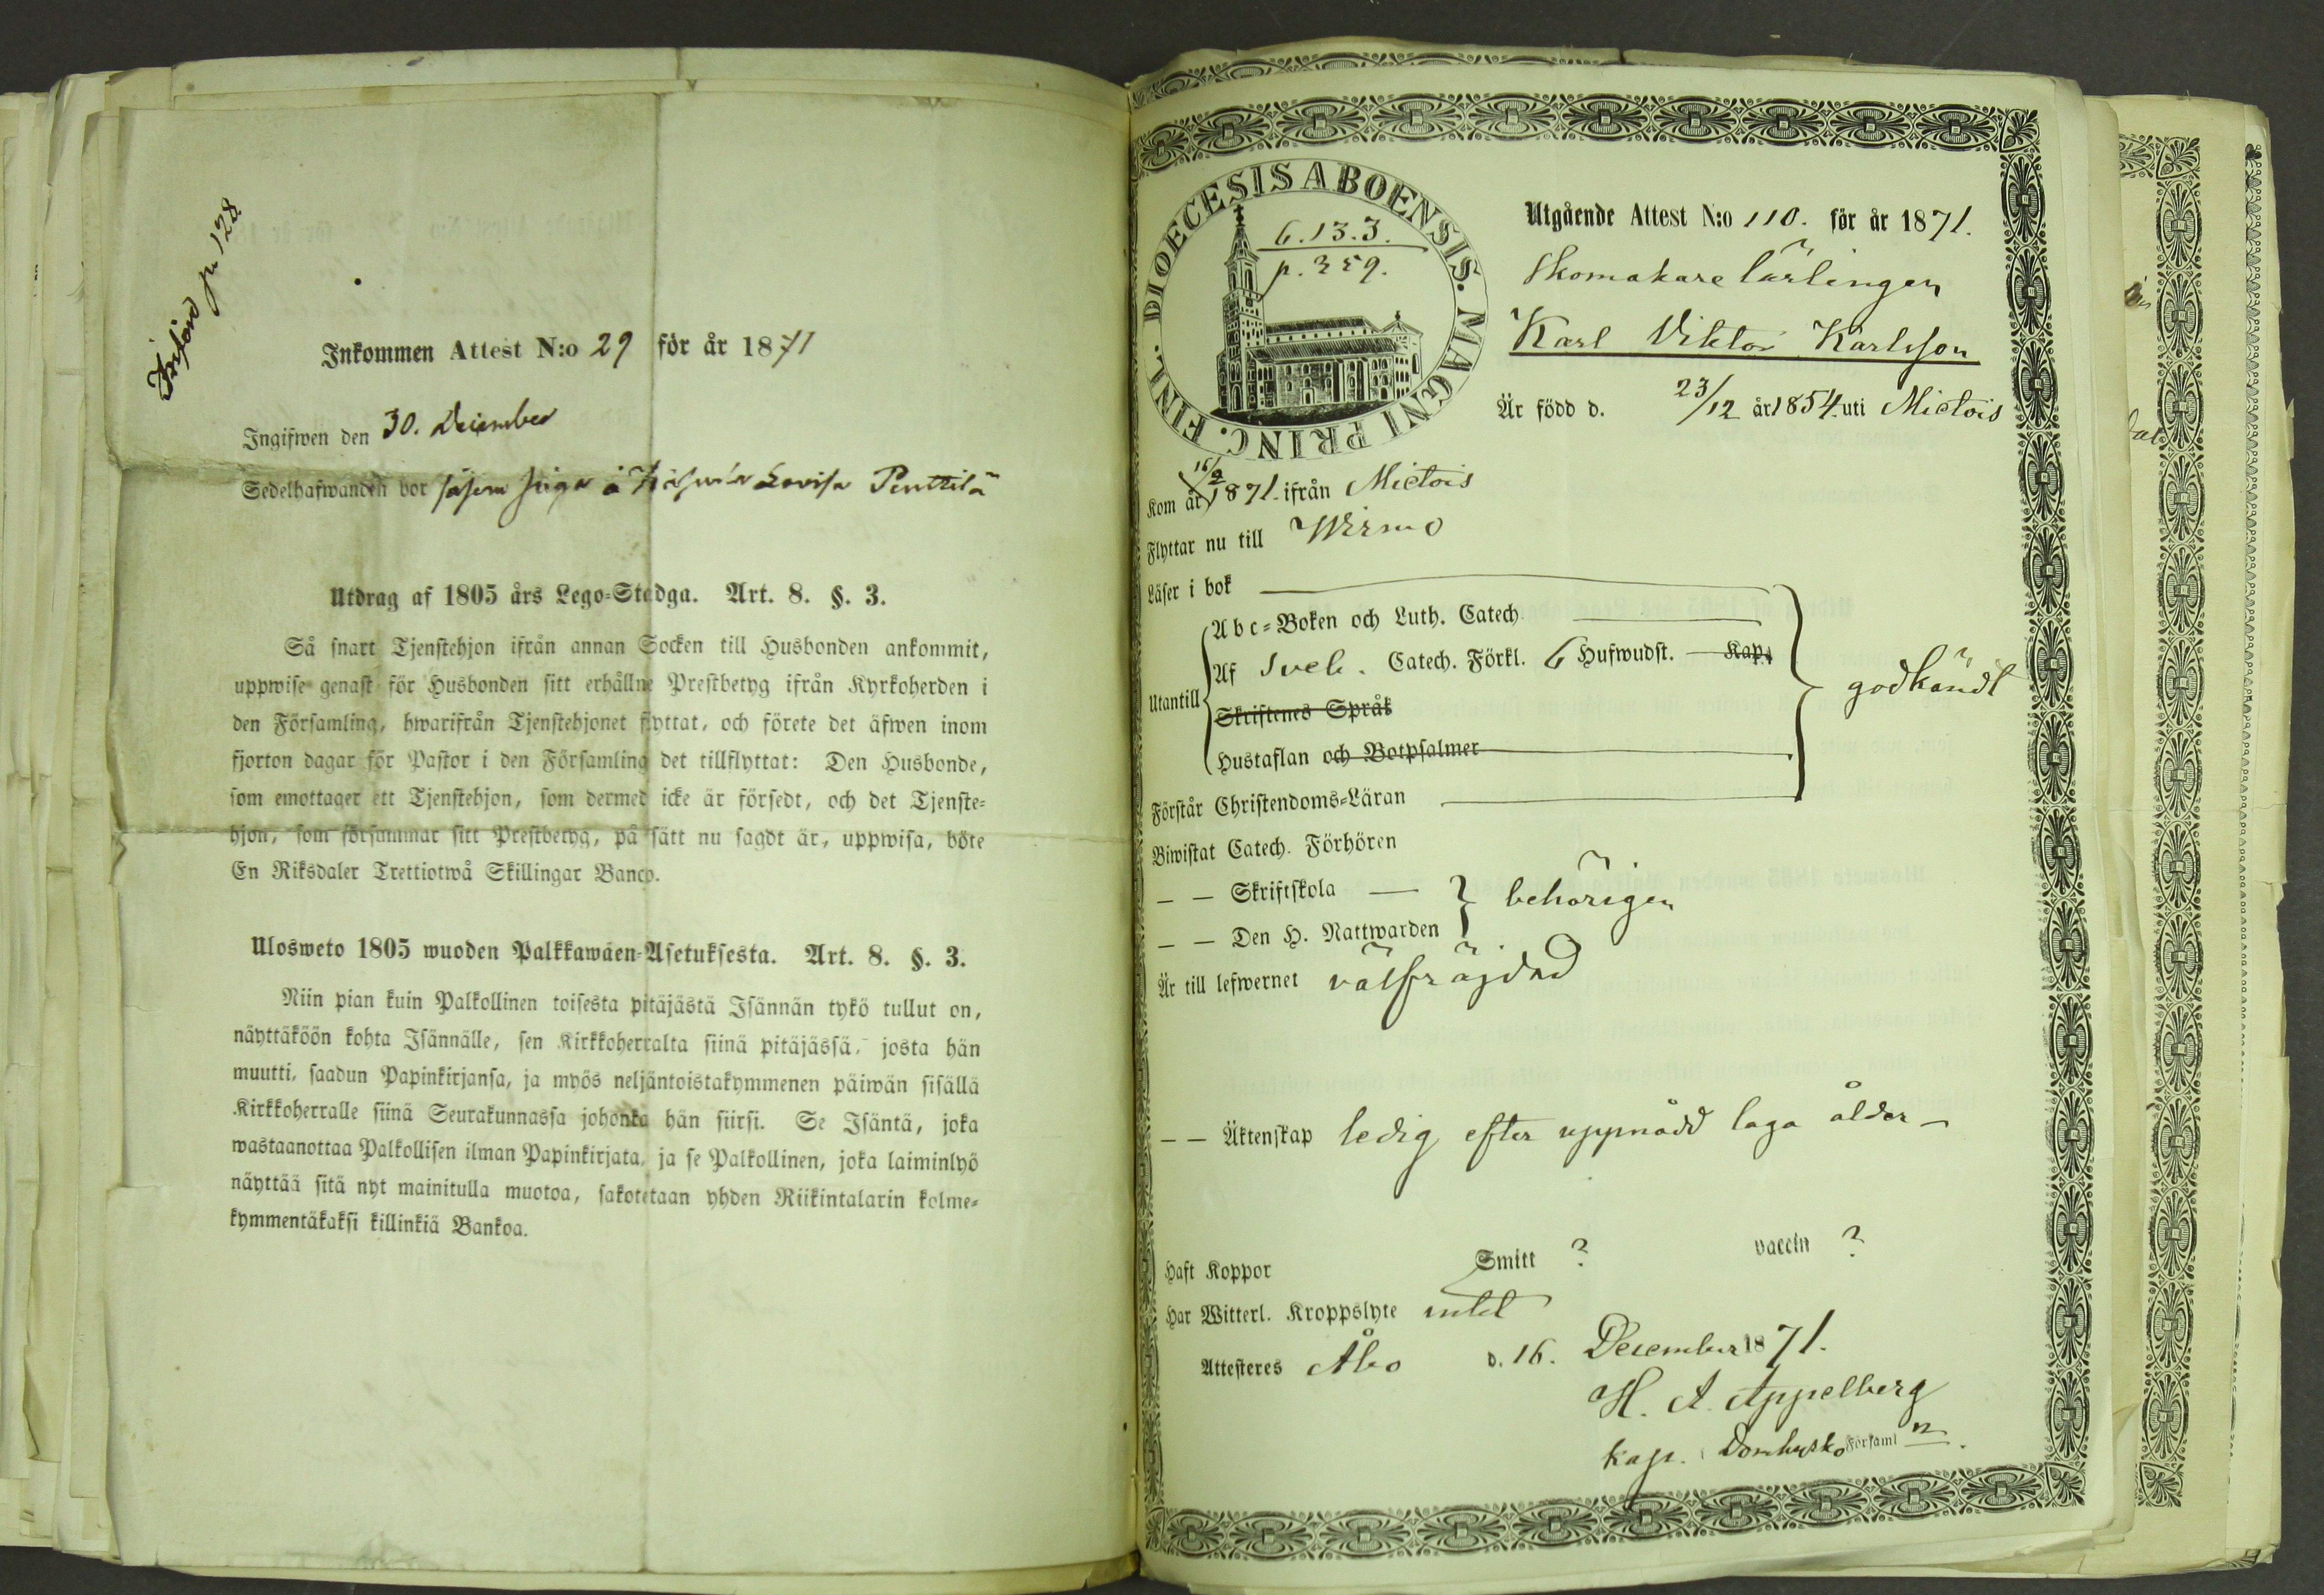 Införd p. 128
Inkommen Attest N:o 29 för år 1871
Ingifwen den 30. December
Sedelhafwanden bor såsom piga å Lovisa Penttilä
Utdrag af 1805 års Lego-Stadga. Art. 8. §. 3.
Så snart Tjenstehjon ifrån annan Socken till Husbonden ankommit,
uppwise genast för Husbonden sitt erhållne Prestbetyg ifrån Kyrkoherden i
den Församling, hwarifrån Tjenstehjonet flyttat, och förete det äfwen inom
fjorton dagar för Pastor i den Församling det tillflyttat: Den Husbonde,
som emottager ett Tjenstehjon, som dermed icke är försedt, och det Tjenste-
hjon, som försummar sitt Prestbetyg, på sätt nu sagdt är, uppwisa, böte
En Riksdaler Trettiotwå Skillingar Banco.
Ulosweto 1805 wuoden Palkkawäen-Asetuksesta. Art. 8. §. 3.
Niin pian kuin Palkollinen toisesta pitäjästä Isännän tykö tullut on,
näyttäköön kohta Isännälle, sen Kirkkoherralta siinä pitäjässä, josta hän
muutti, saadun Papinkirjansa, ja myös neljäntoistakymmenen päiwän sisällä
Kirkkoherralle siinä Seurakunnassa johonka hän siirsi. Se Isäntä, joka
wastaanottaa Palkollisen ilman Papinkirjata, ja se Palkollinen, joka laiminlyö
näyttää sitä nyt mainitulla muotoa, sakotetaan yhden Riikintalarin kolme-
kymmentäkaksi killinkiä Bankoa.
DIOECESIS ABOENSIS. MAGNI PRINC. FINL.
6.13.3.
p. 359.
Utgående Attest N:o 110. för år 1871.
Skomakare lärlingen
Karl Viktor Karlsson
Är född d. 23/12 år 1854. uti Mietois
Kom år 16/2 1871. ifrån Mietois
Flyttar nu till Wirmo
Läser i bok
Abc-Boken och Luth. Catech.
Utantill
Af Sveb. Catech. Förkl. 6 Hufwudst. Kap.
Skriftenes Språk
Hustaflan och Botpsalmer
godkändt
Förstår Christendoms-Läran
Biwistat Catech. Förhören
— — Skriftskola —
behörigen
— — Den H. Nattwarden
Är till lefwernet välfräjdad
— — Äktenskap ledig efter uppnådd laga ålder —
Haft Koppor Smitt ? vaccin ?
Har Witterl. Kroppslyte intet
Attesteres Åbo d. 16. December 1871.
H. A. Appelberg
kap. i Domkyrko Församl n.